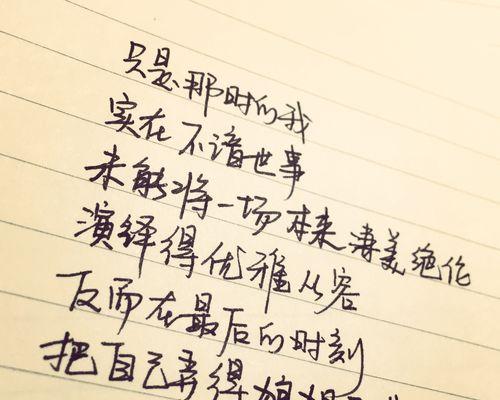 只是那时的我
实在不谙世事
未能将一场本来凄美绝伦
演绎得优雅从容
反而在最后的时刻
把自己弄得狼狈